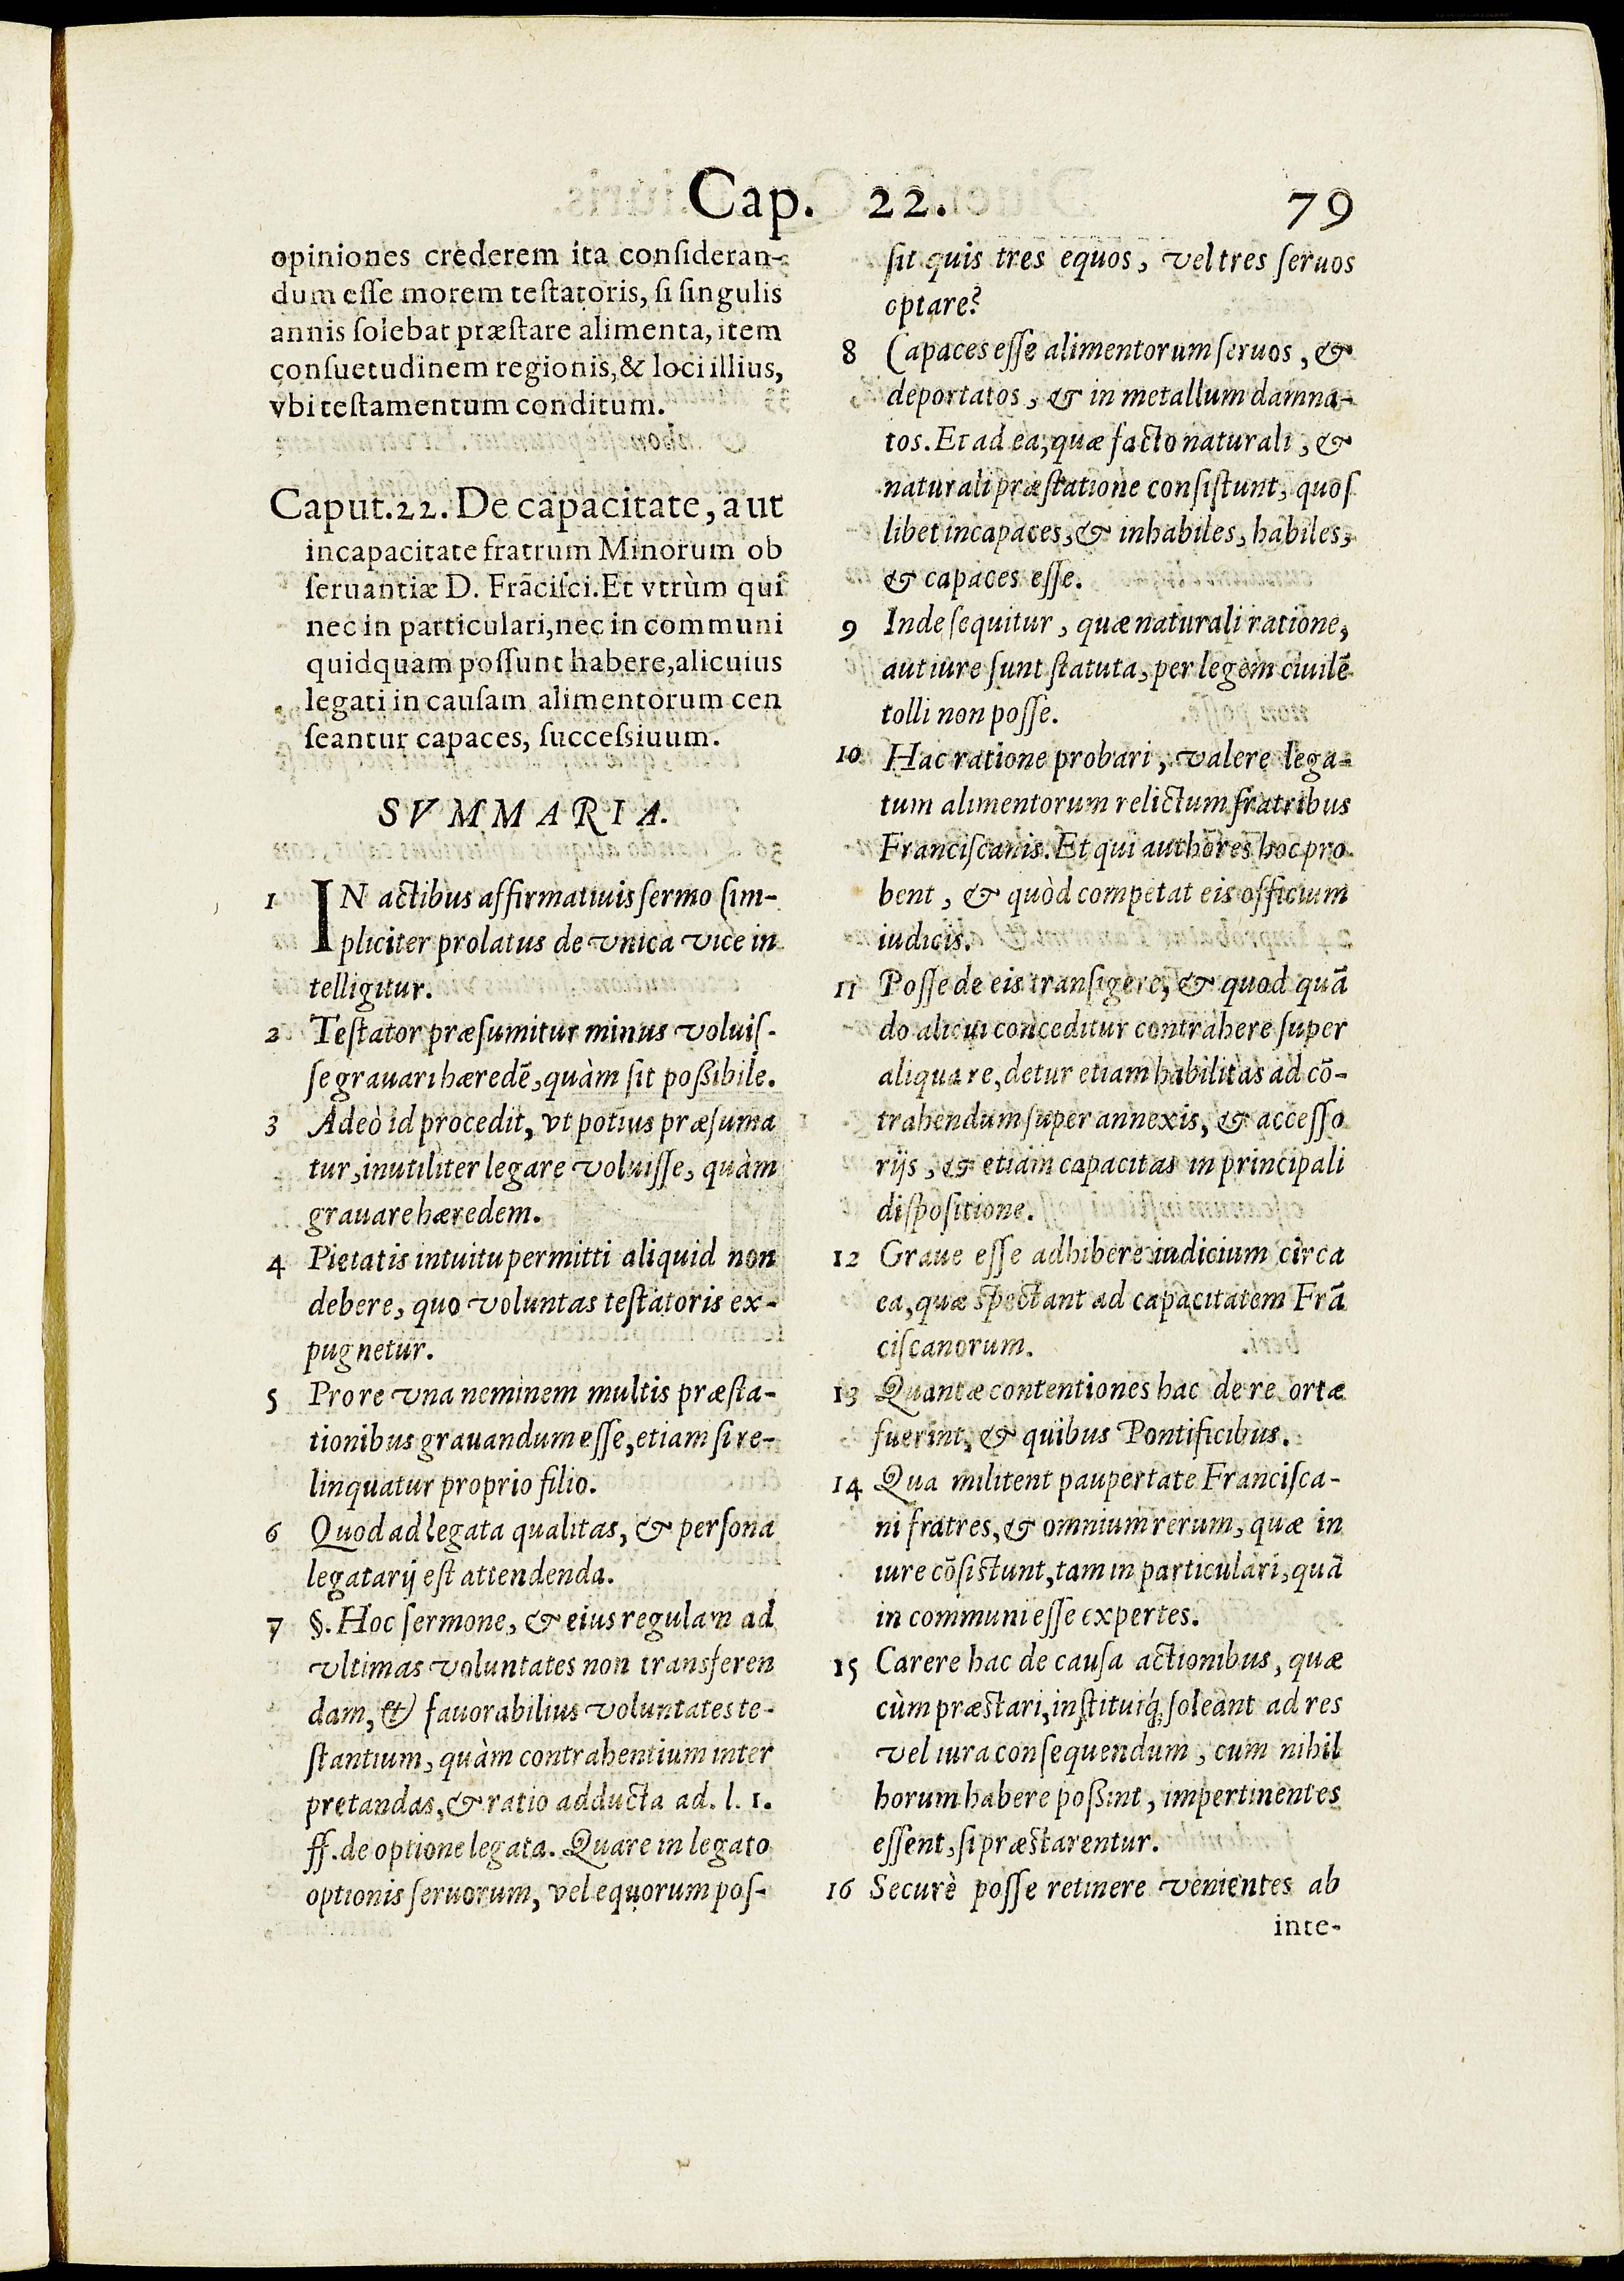 Cap. 22. 79
opiniones crederem ita conſideran-
dum eſſe morem teſtatoris, ſi ſingulis
annis ſolebat præſtare alimenta, item
conſuetudinem regionis, & loci illius,
vbi teſtamentum conditum.
Caput.22. De capacitate, aut
incapacitate fratrum Minorum ob
ſeruantiæ D. Frãciſci. Et vtrùm qui
nec in particulari, nec in communi
quidquam poſſunt habere, alicuius
legati in cauſam alimentorum cen
ſeantur capaces, ſucceſsiuum.
SVMMARIA.
1 IN actibus affirmatiuis ſermo ſim-
pliciter prolatus de vnica vice in
telligitur.
2 Teſtator præſumitur minus voluiſ-
ſe grauari hæredẽ, quàm ſit poßibile.
3 Adeò id procedit, vt potius præſuma
tur, inutiliter legare voluiſſe, quàm
grauare hæredem.
4 Pietatis intuitu permitti aliquid non
debere, quo voluntas teſtatoris ex-
pugnetur.
5 Pro re vna neminem multis præſta-
tionibus grauandum eſſe, etiam ſi re-
linquatur proprio filio.
6 Quod ad legata qualitas, & perſona
legatarij eſt attendenda.
7 §. Hoc ſermone, & eius regulam ad
vltimas voluntates non transferen
dam, & fauorabilius voluntates te-
ſtantium, quàm contrahentium inter
pretandas, & ratio adducta ad. l. 1.
ff. de optione legata. Quare in legato
optionis ſeruorum, vel equorum poſ-
ſit quis tres equos, vel tres ſeruos
optare?
8 Capaces eſſe alimentorum ſeruos, &
deportatos, & in metallum damna-
tos. Et ad ea, quæ facto naturali, &
naturali præſtatione conſiſtunt, quoſ
libet incapaces, & inhabiles, habiles,
& capaces eſſe.
9 Inde ſequitur, quæ naturali ratione,
aut iure ſunt ſtatuta, per legem ciuilẽ
tolli non poſſe.
10 Hac ratione probari, valere lega-
tum alimentorum relictum fratribus
Franciſcanis. Et qui authores hoc pro
bent, & quòd competat eis officium
iudicis.
11 Poſſe de eis tranſigere, & quod quã
do alicui conceditur contrahere ſuper
aliqua re, detur etiam habilitas ad cõ-
trahendum ſuper annexis, & acceſſo
rijs, & etiam capacitas in principali
diſpoſitione.
12 Graue eſſe adhibere iudicium circa
ea, quæ ſpectant ad capacitatem Frã
ciſcanorum.
13 Quantæ contentiones hac de re ortæ
fuerint, & quibus Pontificibus.
14 Qua militent paupertate Franciſca-
ni fratres, & omnium rerum, quæ in
iure cõſiſtunt, tam in particulari, quã
in communi eſſe expertes.
15 Carere hac de cauſa actionibus, quæ
cùm præſtari, inſtituiq́; ſoleant ad res
vel iura conſequendum, cum nihil
horum habere poßint, impertinentes
eſſent, ſi præſtarentur.
16 Securè poſſe retinere venientes ab
inte-